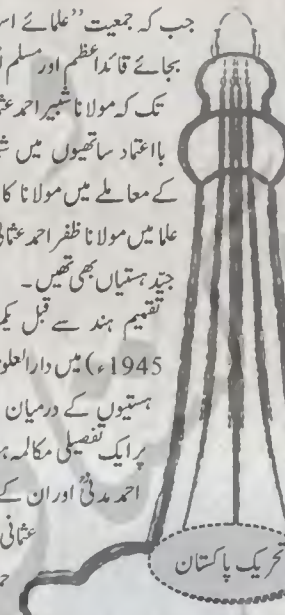 جب کہ جمعیت ’’علمائے اس
بجائے قائداعظم اور مسلم
تک کہ مولانا شبیر احمد عثما
بااعتماد ساتھیوں میں
کے معاملے میں مولانا کا
علما میں مولانا ظفر احمد عثمانی
جیّد ہستیاں بھی تھیں۔
تقسیم ہند سے قبل یکم
1945ء) میں دارالعلو
ہستیوں کے درمیان
پر ایک تفصیلی مکالمہ ہ
احمد مدنیؒ اور ان کے
عثمانی
تحریک پاکستان